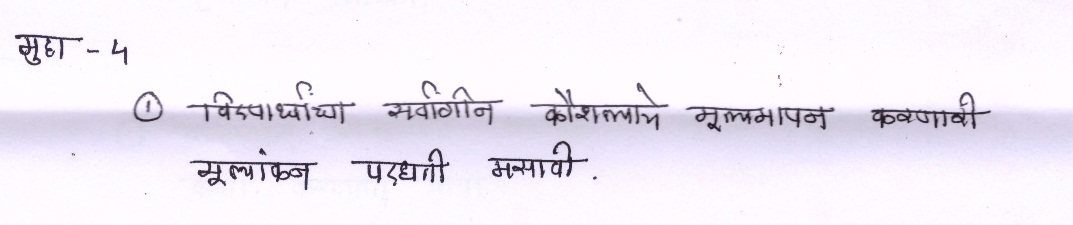 मुद्दा - 4
① विद्यार्थ्यांच्या सर्वांगीन कौशल्याचे मूल्यमापन करणारी
मूल्यांकन पद्धती असावी.